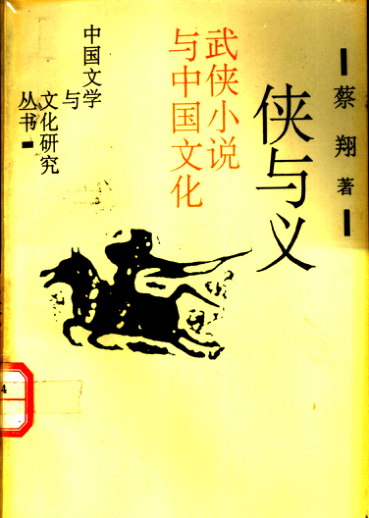 蔡翔著
侠与义
武侠小说
与中国文化
中国文学
与
文化研究
丛书
4